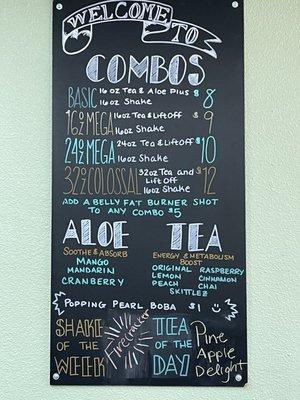 WELCOME TO
COMBOS
BASIC 16 oz Tea & Aloe Plus $8
16 oz Shake
16oz MEGA 16oz Tea & LiftOff $9
16oz Shake
24oz MEGA 24oz Tea & LiftOff $10
16oz Shake
32oz COLOSSAL 32oz Tea and $12
Lift Off
16oz Shake
ADD A BELLY FAT BURNER SHOT
TO ANY COMBO $5
ALOE
Soothe & Absorb
MANGO
MANDARIN
CRANBERRY
TEA
ENERGY & METABOLISM
BOOST
ORIGINAL RASPBERRY
LEMON CINNAMON
PEACH CHAI
SKITTLEZ
POPPING PEARL BOBA $1
SHAKE
OF THE
WEEK
Firecracker
TEA
OF THE
DAY
Pine
Apple
Delight